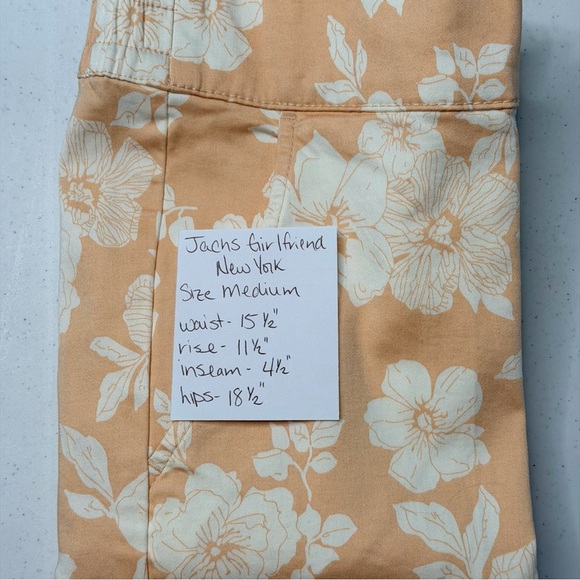 Jachs Girlfriend
New York
Size Medium
waist- 15 ½"
rise- 11½"
inseam - 4½"
hips- 18½"